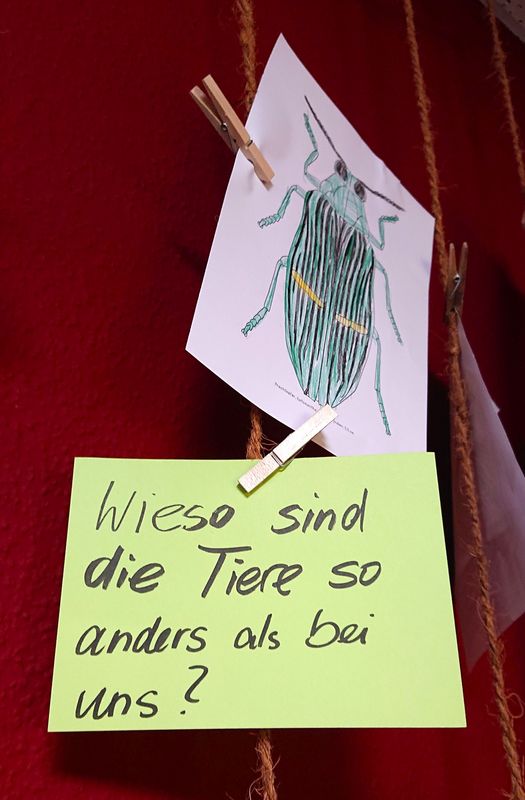 Prachtkäfer,
Wieso sind
die Tiere so
anders als bei
uns?